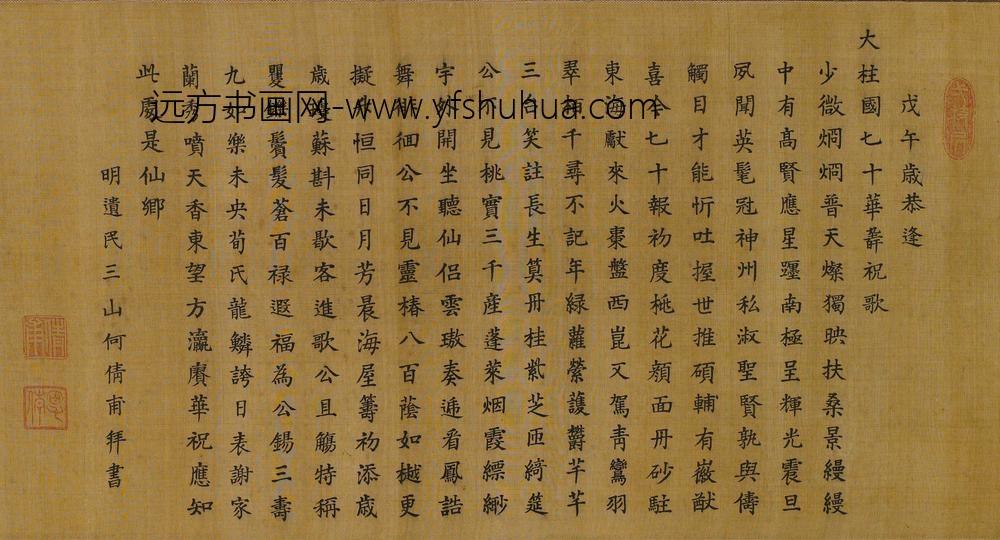 戊午歲恭逢
大柱國七十華壽祝歌
少微烱烱普天燦獨映扶桑景縵縵
中有高賢應星躔南極呈輝光震旦
夙聞英髦冠神州私淑聖賢孰與儔
觸目才能忻吐握世推碩輔有嶶猷
喜今七十報初度桃花顏面丹砂駐
東海獻來火棗盤西崑又駕青鸞羽
翠柏千尋不記年綠蘿縈護欝芊芊
三 笑註長生筭丹桂紫芝匝綺筵
公 見桃實三千產蓬萊烟霞縹緲
宇 開坐聽仙侶雲璈奏遞看鳳誥
舞 徊公不見靈椿八百蔭如樾更
擬 恒同日月芳晨海屋籌初添歲
歲 蘇斟未歇客進歌公且觴特稱
矍鑠鬢髮蒼百祿遐福為公錫三壽
九如樂未央荀氏龍鱗誇日表謝家
蘭秀噴天香東望方瀛賡華祝應知
此處是仙鄉
明遺民三山何倩甫拜書
远方书画网-www.yfshuhua.com